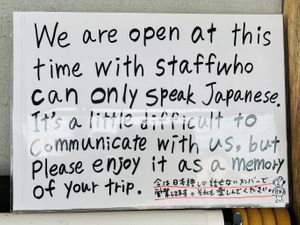 We are open at this
time with staffwho
can only speak Japanese.
It's a little difficult to
communicate with us, but
Please enjoy it as a memory
of your trip.
今は日本語しか話せないメンバーで
営業してます。それも楽しんでください。